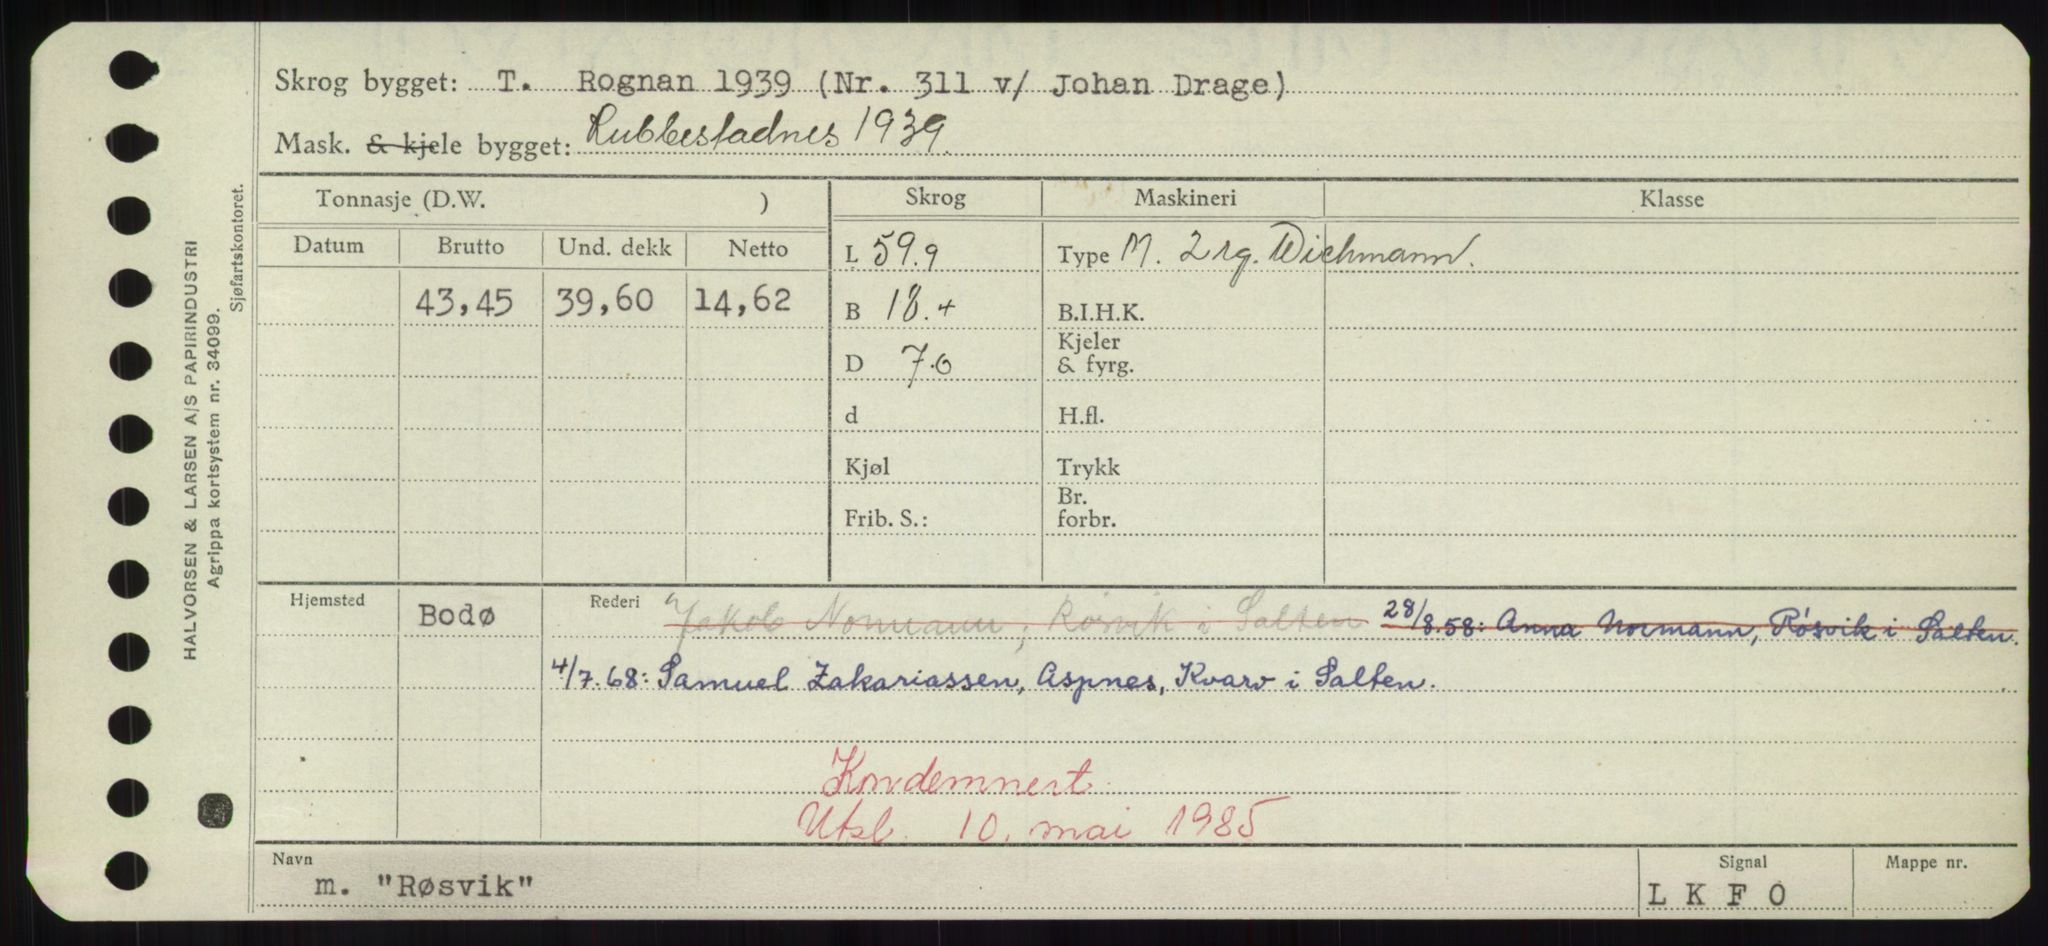 Skrog bygget: T. Rognan 1939 (Nr. 311 v/ Johan Drage)
Mask. & kjele bygget: Rubbestadnes 1939.
Tonnasje (D.W. )
Skrog
Maskineri
Klasse
Datum
Brutto
Und. dekk
Netto
L 59.9
Type M. 2 sg. Wichmann.
43,45
39,60
14,62
B 18.4
B.I.H.K.
D 7.0
Kjeler
& fyrg.
d
H.fl.
Kjøl
Trykk
Frib. S.:
Br.
forbr.
Hjemsted
Bodø
Rederi
Jakob Normann, Røsvik i Salten
28/8.58: Anna Normann, Røsvik i Salten.
4/7.68: Samuel Zakariassen, Aspnes, Kvarv i Salten.
Kondemnert.
Utsl. 10. mai 1985
Navn
m. "Røsvik"
Signal
L K F O
Mappe nr.
HALVORSEN & LARSEN A/S PAPIRINDUSTRI
Agrippa kortsystem nr. 34099.
Sjøfartskontoret.